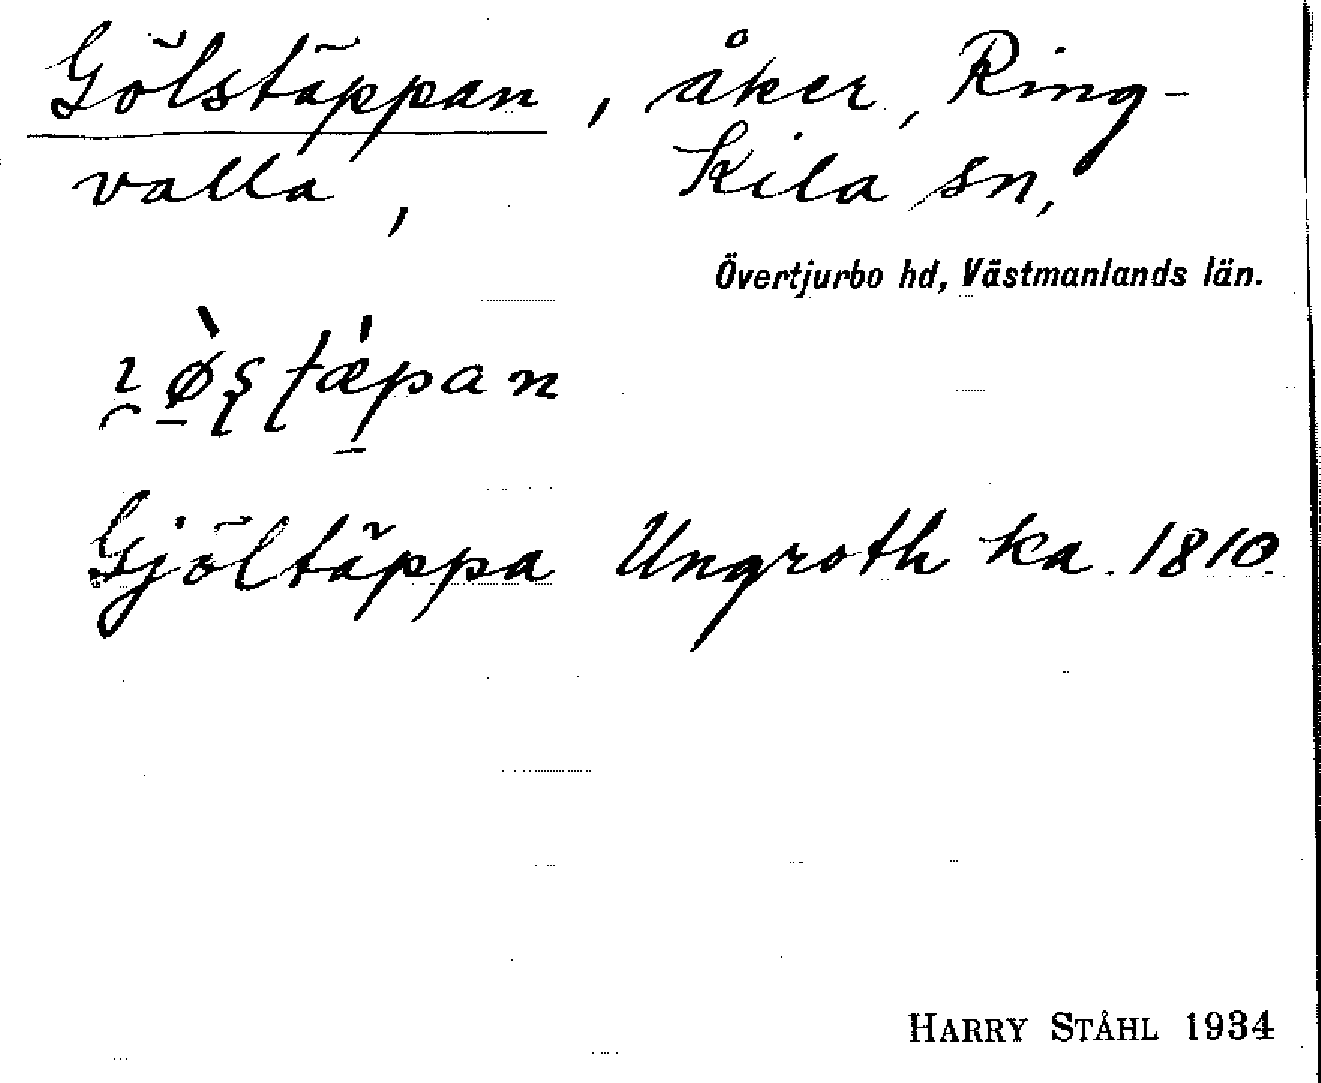 Gölstäppan, åker, Ring-
valla, Kila sn,
Övertjurbo hd, Västmanlands län.
Gjöltäppa Ungroth ka 1810
HARRY STÅHL 1934